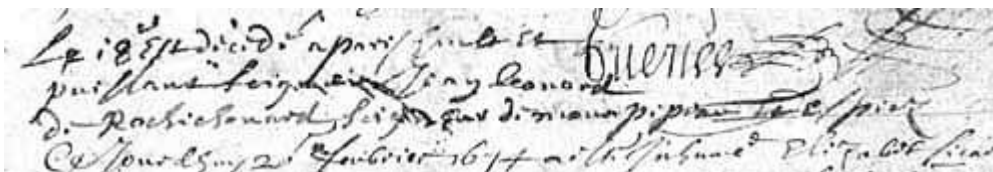 Le 18e Est décédé a paris hault et
puissant Seigneur Jean Leonord
de Rochechouard, Seigneur de monpipeau et
Ce Jourdhuy 2e feubvrier 1654 a esté Inhumé Elizabet